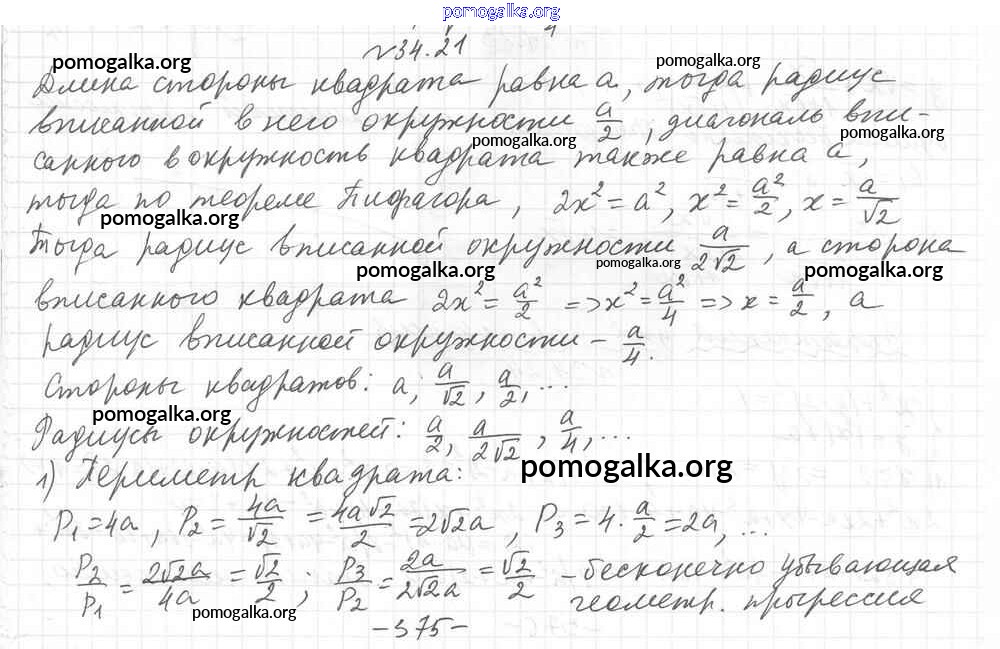 pomogalka.org
№34.21
pomogalka.org pomogalka.org
Длина стороны квадрата равна a, тогда радиус
вписанной в него окружности a/2, диагональ впи-
pomogalka.org pomogalka.org
санного в окружность квадрата также равна a,
тогда по теореме Пифагора, 2x² = a², x² = a²/2, x = a/√2
pomogalka.org
Тогда радиус вписанной окружности a/2√2, а сторона
pomogalka.org pomogalka.org pomogalka.org
вписанного квадрата 2x² = a²/2 => x² = a²/4 => x = a/2, а
радиус вписанной окружности – a/4.
Стороны квадратов: a, a/√2, a/2, ...
pomogalka.org
Радиусы окружностей: a/2, a/2√2, a/4, ...
pomogalka.org
1) Периметр квадрата:
P₁ = 4a, P₂ = 4a/√2 = 4a√2/2 = 2√2a, P₃ = 4 · a/2 = 2a, ...
P₂/P₁ = 2√2a/4a = √2/2; P₃/P₂ = 2a/2√2a = √2/2 – бесконечно убывающая
геометр. прогрессия
pomogalka.org
–375–